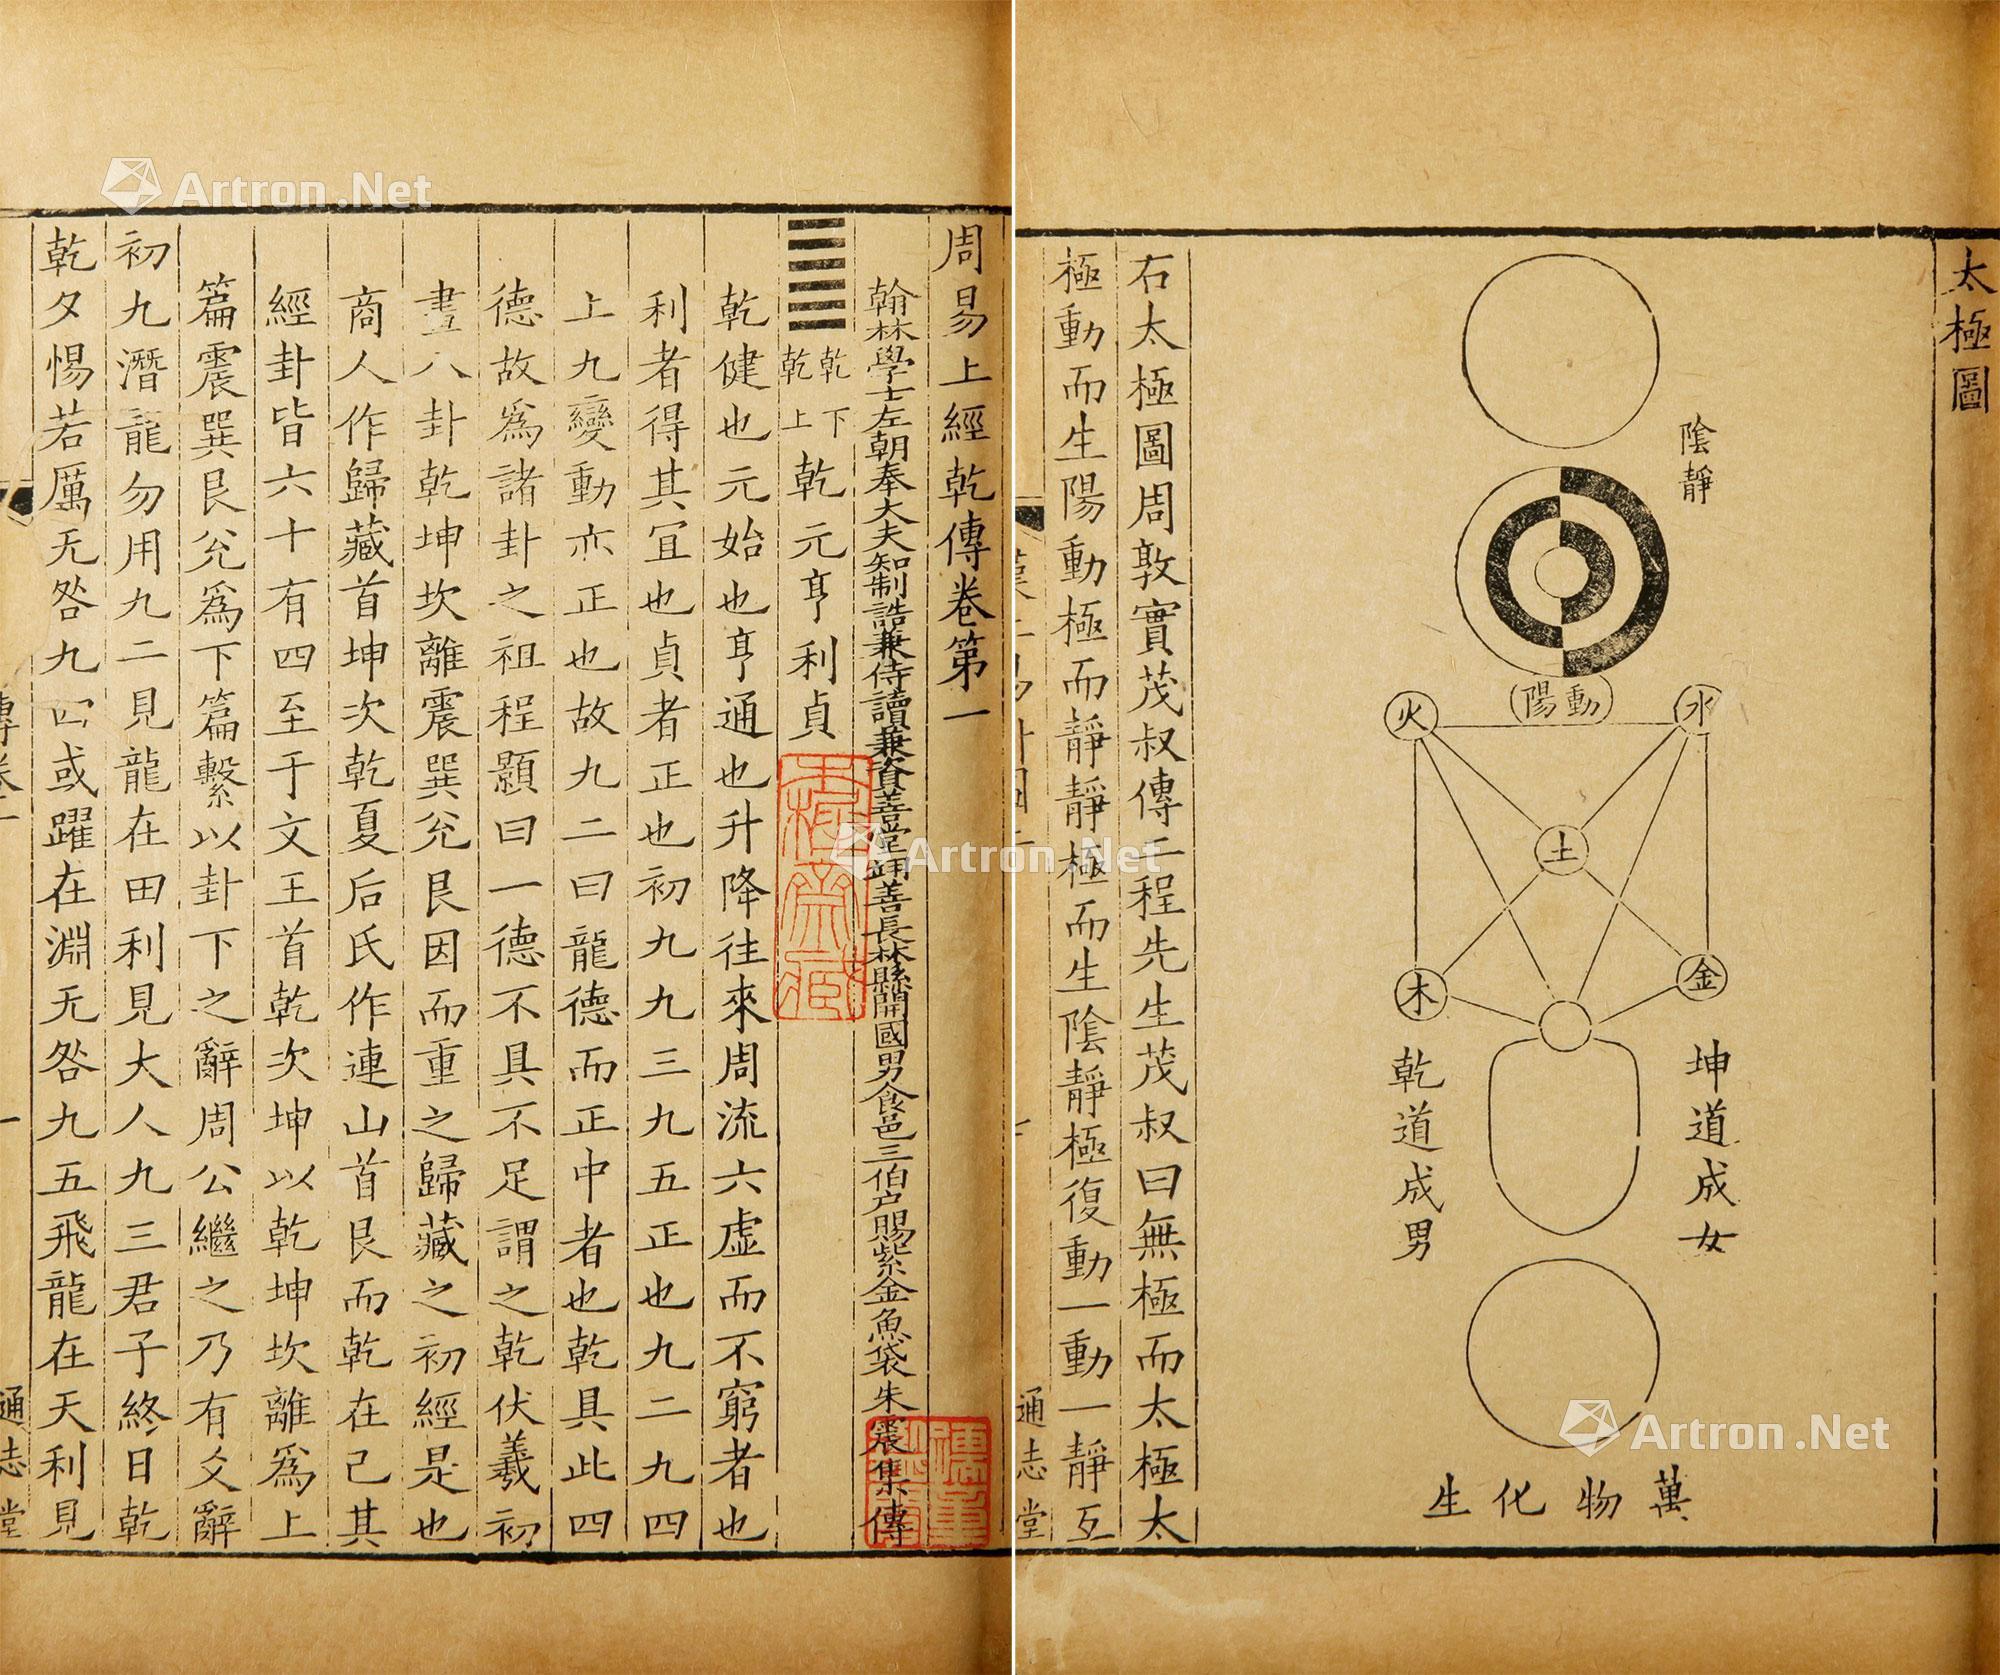 太極圖
陰靜
陽動
火
水
土
木
金
乾道成男
坤道成女
萬物化生
右太極圖周敦實茂叔傳二程先生茂叔曰無極而太極太
極動而生陽動極而靜靜極而生陰靜極復動一動一靜互
通志堂
周易上經乾傳卷第一
翰林學士左朝奉大夫知制誥兼侍讀兼資善堂翊善長林縣開國男食邑三伯戶賜紫金魚袋朱震集傳
乾下乾上乾元亨利貞
乾健也元始也亨通也升降往來周流六虛而不窮者也
利者得其冝也貞者正也初九九三九五正也九二九四
上九變動亦正也故九二曰龍德而正中者也乾具此四
德故爲諸卦之祖程顥曰一德不具不足謂之乾伏羲初
畫八卦乾坤坎離震巽兊艮因而重之歸藏之初經是也
商人作歸藏首坤次乾夏后氏作連山首艮而乾在已其
經卦皆六十有四至于文王首乾次坤以乾坤坎離爲上
篇震巽艮兊爲下篇繫以卦下之辭周公繼之乃有爻辭
初九潛龍勿用九二見龍在田利見大人九三君子終日乾
乾夕惕若厲无咎九四或躍在淵无咎九五飛龍在天利見
傳卷一
一
通志堂
Artron.Net
Artron.Net
Artron.Net